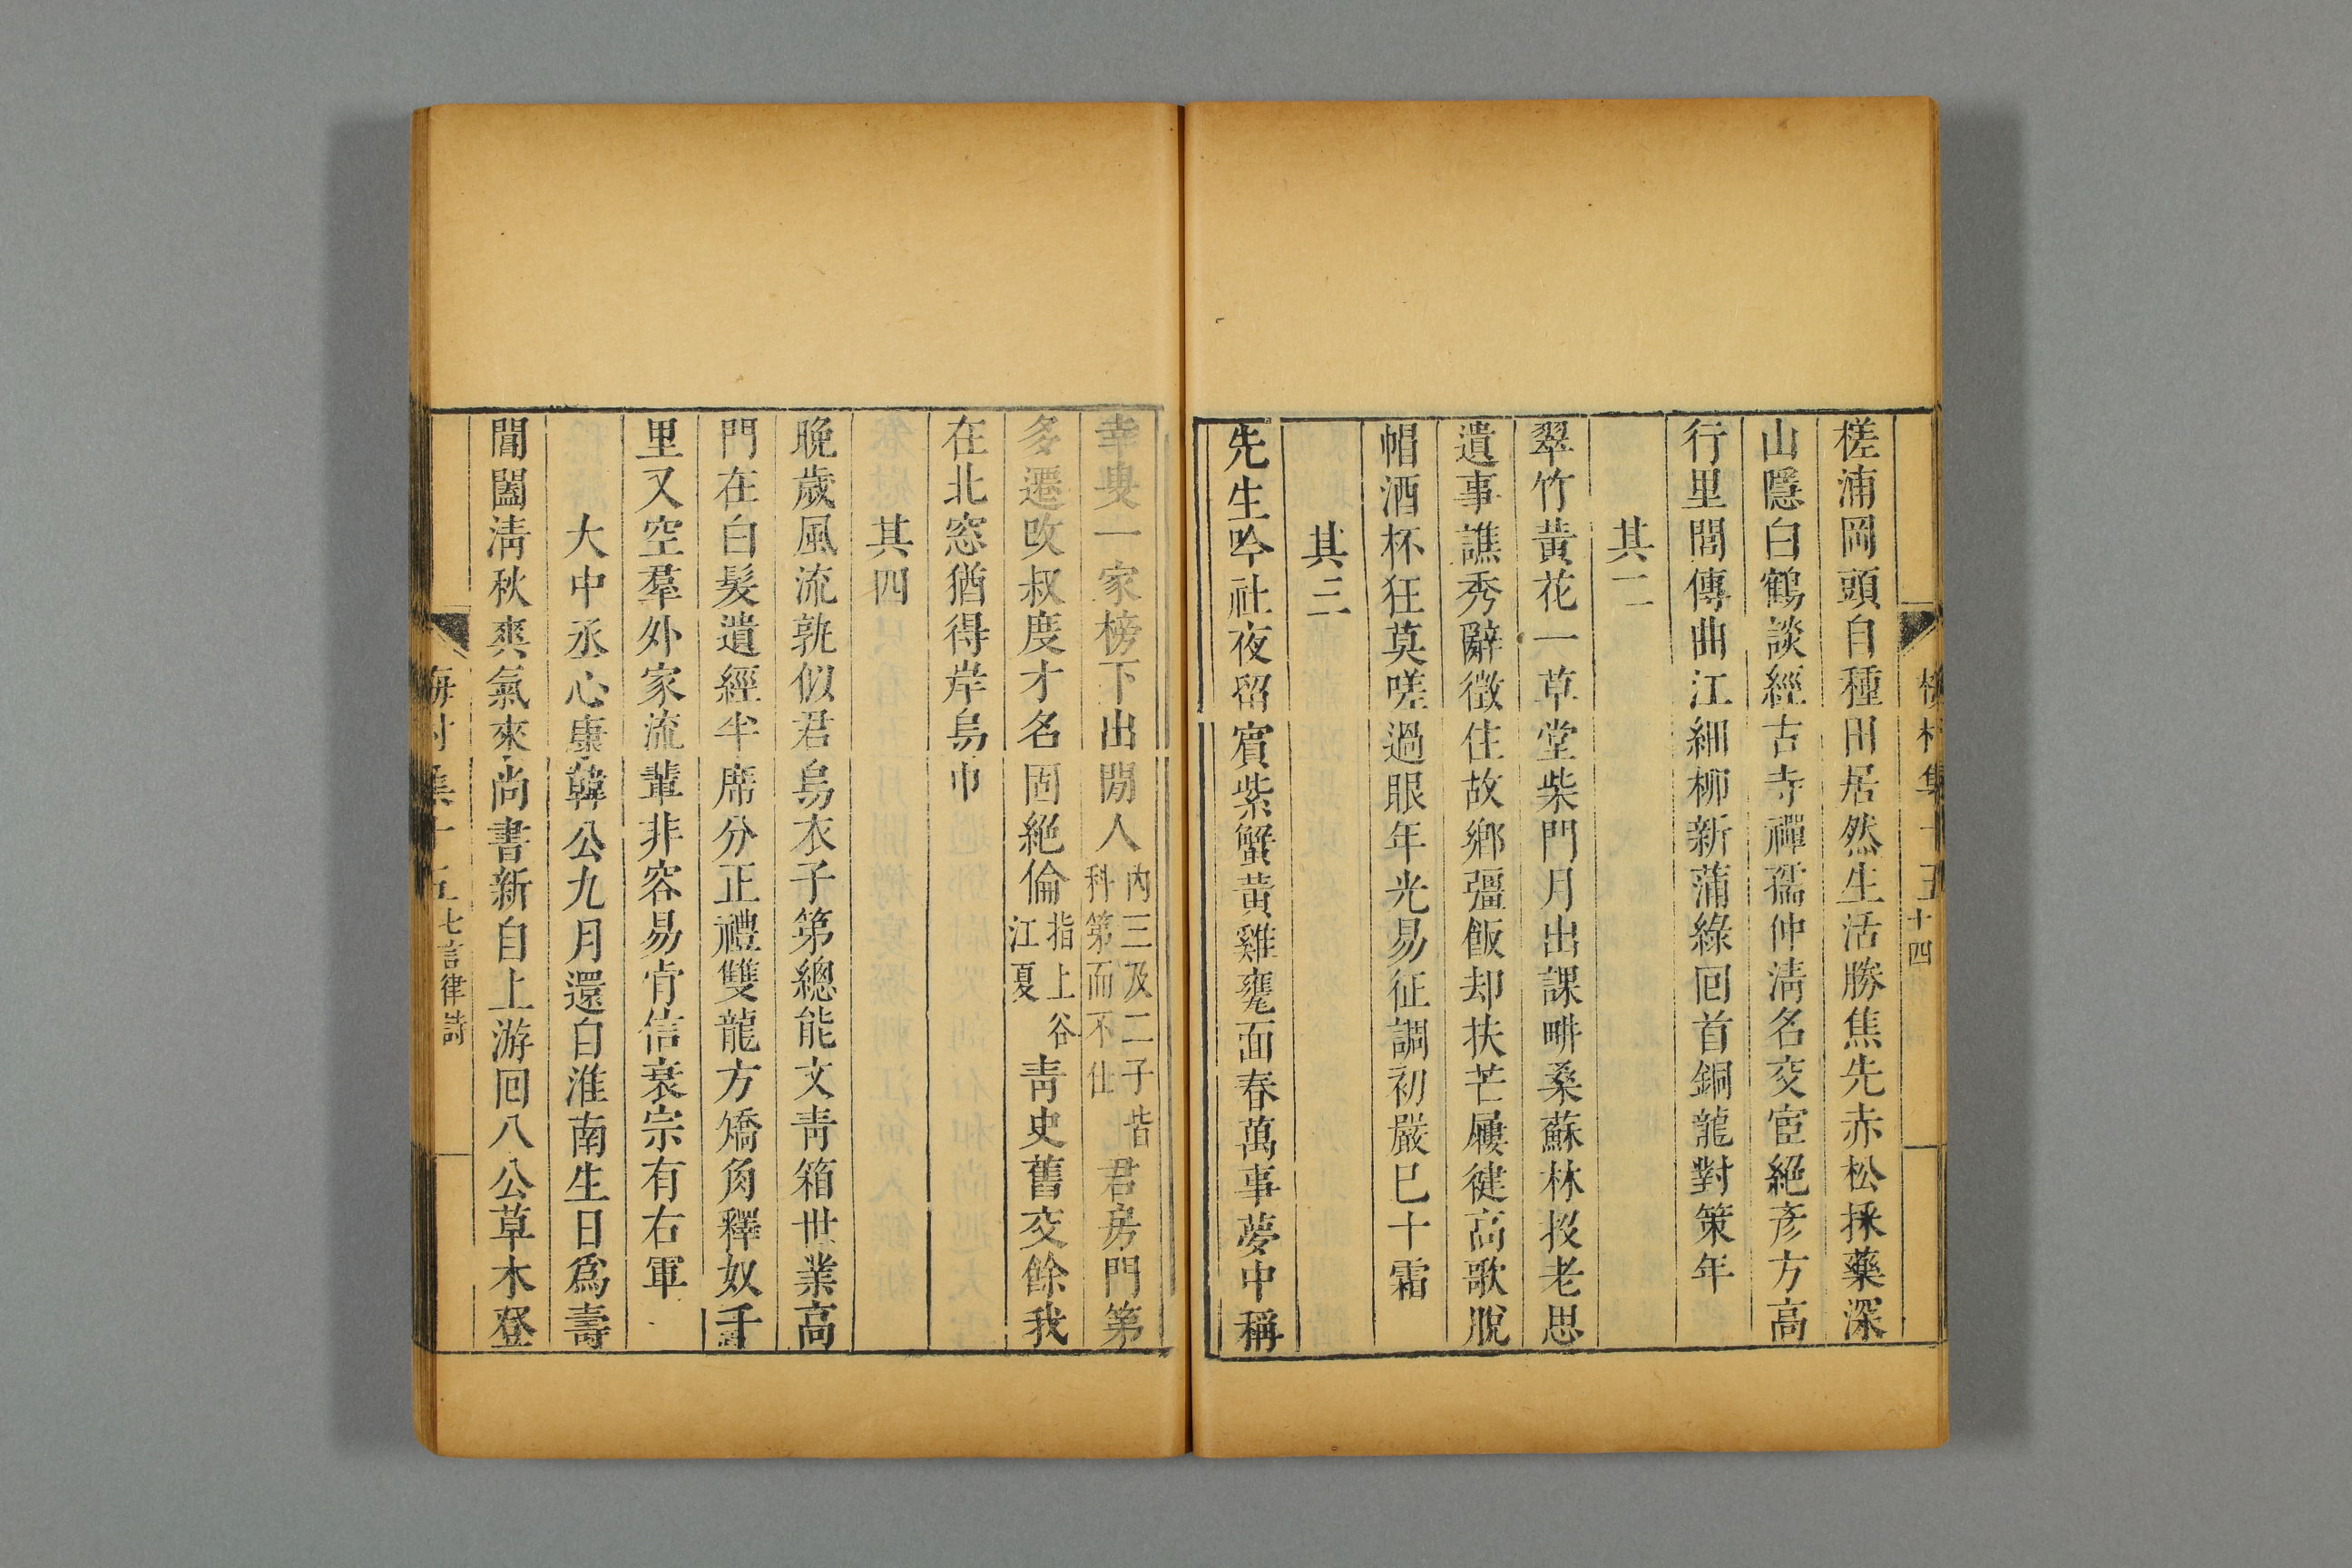 梅村集 十五 十四
槎浦岡頭自種田居然生活勝焦先赤松採藥深
山隱白鶴談經古寺禪孺仲淸名交宦絕彥方高
行里閭傳曲江細柳新蒲綠回首銅龍對策年
其二
翠竹黃花一草堂柴門月出課畊桑蘇林投老思
遺事譙秀辭徵住故鄉彊飯却扶芒屩健高歌脫
帽酒杯狂莫嗟過眼年光易征調初嚴已十霜
其三
先生吟社夜留賓紫蟹黃雞甕面春萬事夢中稱
幸叟一家榜下出閒人內三及二子皆科第而不仕君房門第
多遷攺叔度才名固絕倫指上谷江夏靑史舊交餘我
在北窓猶得岸烏巾
其四
晚歲風流孰似君烏衣子第總能文靑箱世業高
門在白髮遺經半席分正禮雙龍方矯角釋奴千
里又空羣外家流輩非容易肯信衰宗有右軍
大中丞心康韓公九月還自淮南生日爲壽
閶闔淸秋爽氣來尚書新自上游回八公草木登
梅村集十五 七言律詩